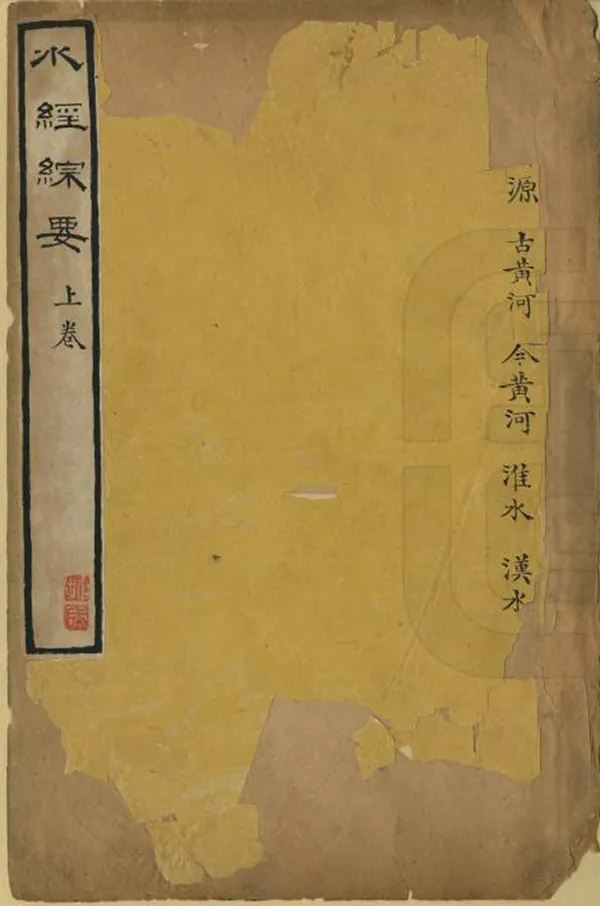 源 古黄河 今黄河 淮水 漢水
水經綜要 上卷